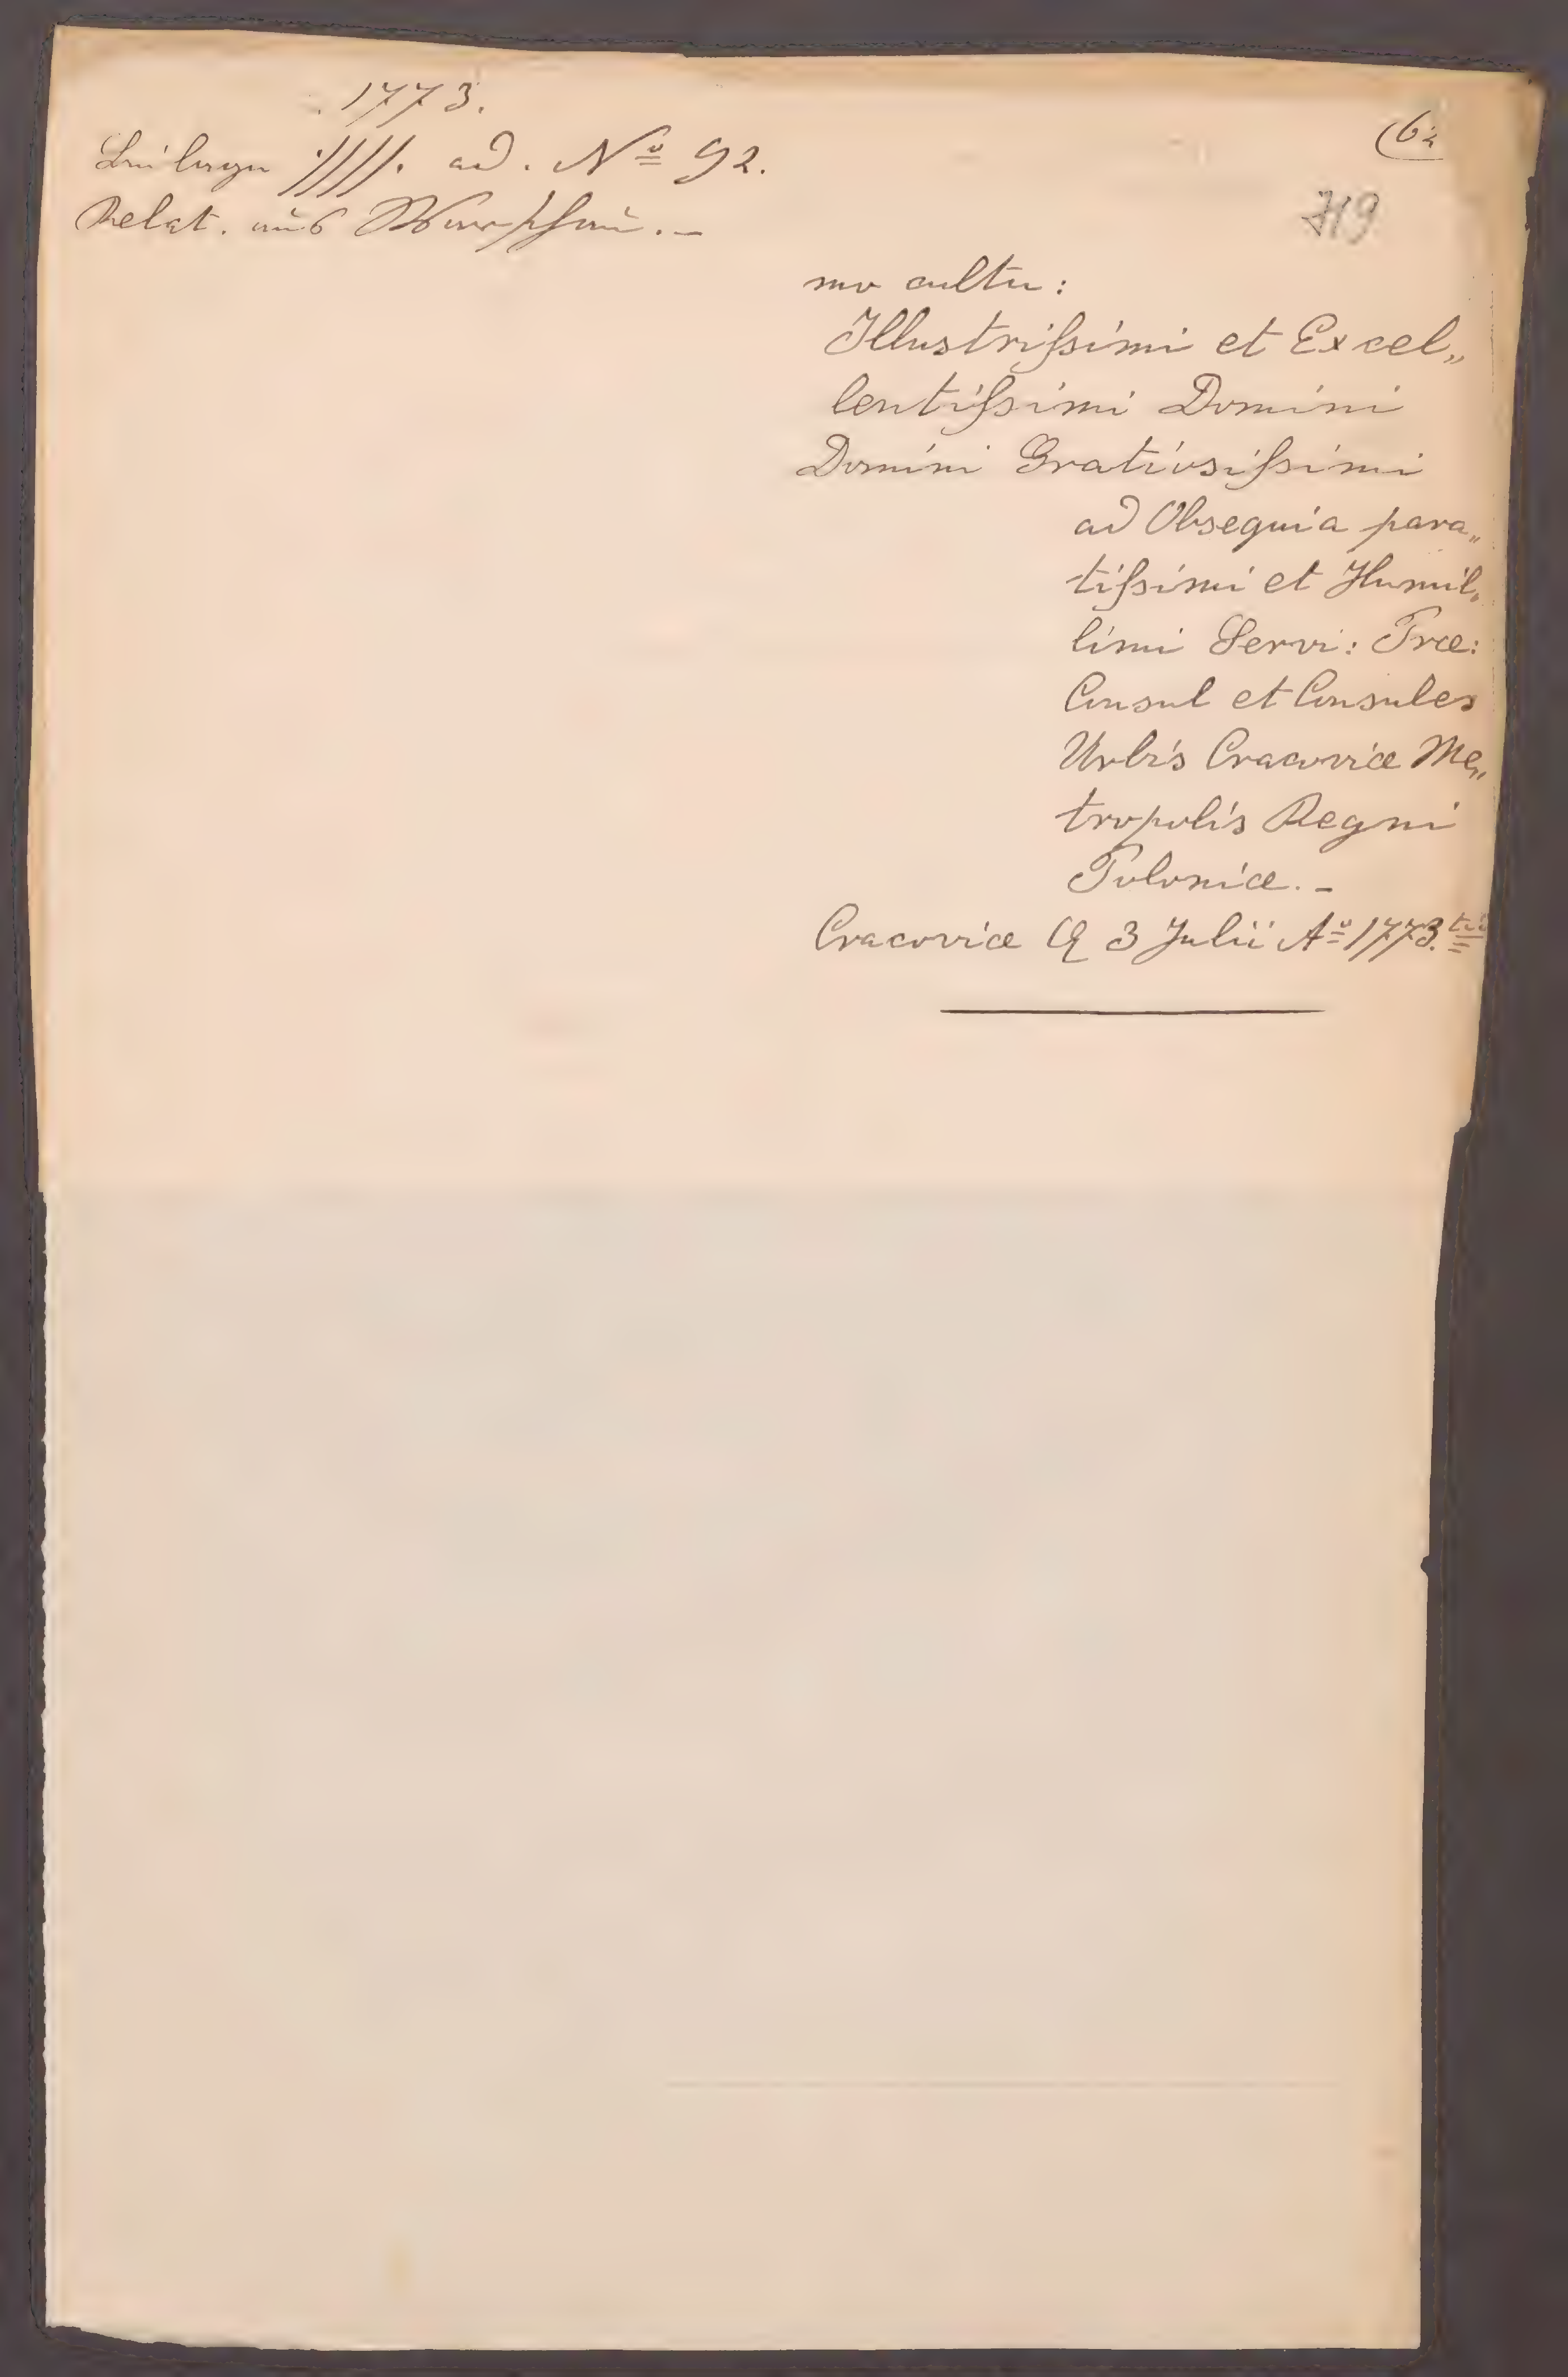 1773.
Beilage ://// ad. N<u>o</u> 92.
Relat. aus Warschau. –
(62
719
mo cultu:
Illustrißimi et Excel„
lentißimi Domini
Domini Gratiosißimi
ad Obsequia para„
tißimi et Humil„
limi Servi: Præ:
Consul et Consules
Urbis Cracoviæ Me„
tropolis Regni
Poloniæ. –
Cracoviæ 3 Julii Ao 1773.